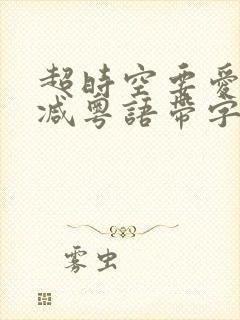 超時空要愛
减粵語帶字
雾虫